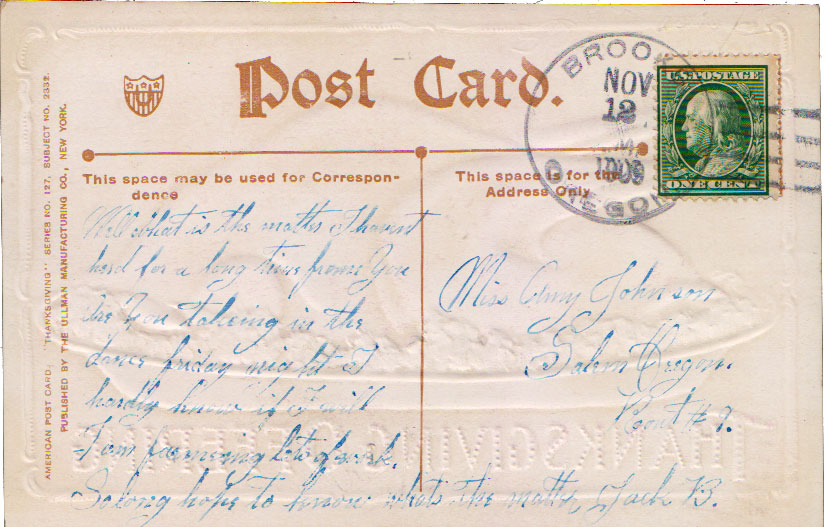 Post Card.
BROOK
NOV
12
1909
OREGON
U.S. POSTAGE
ONE CENT
This space may be used for Correspon-
dence
This space is for the
Address Only
AMERICAN POST CARD. "THANKSGIVING" SERIES NO. 127. SUBJECT NO. 2332.
PUBLISHED BY THE ULLMAN MANUFACTURING CO., NEW YORK.
Well what is the matter I havent
herd for a long time from You
are You takeing in the
dance friday night I
hardly know if I will
I am farmeing lots of work.
So long hope to know whats the matter, Jack B.
Miss Amy Johnson
Salem Oregon.
Rout #
THANKSGIVING